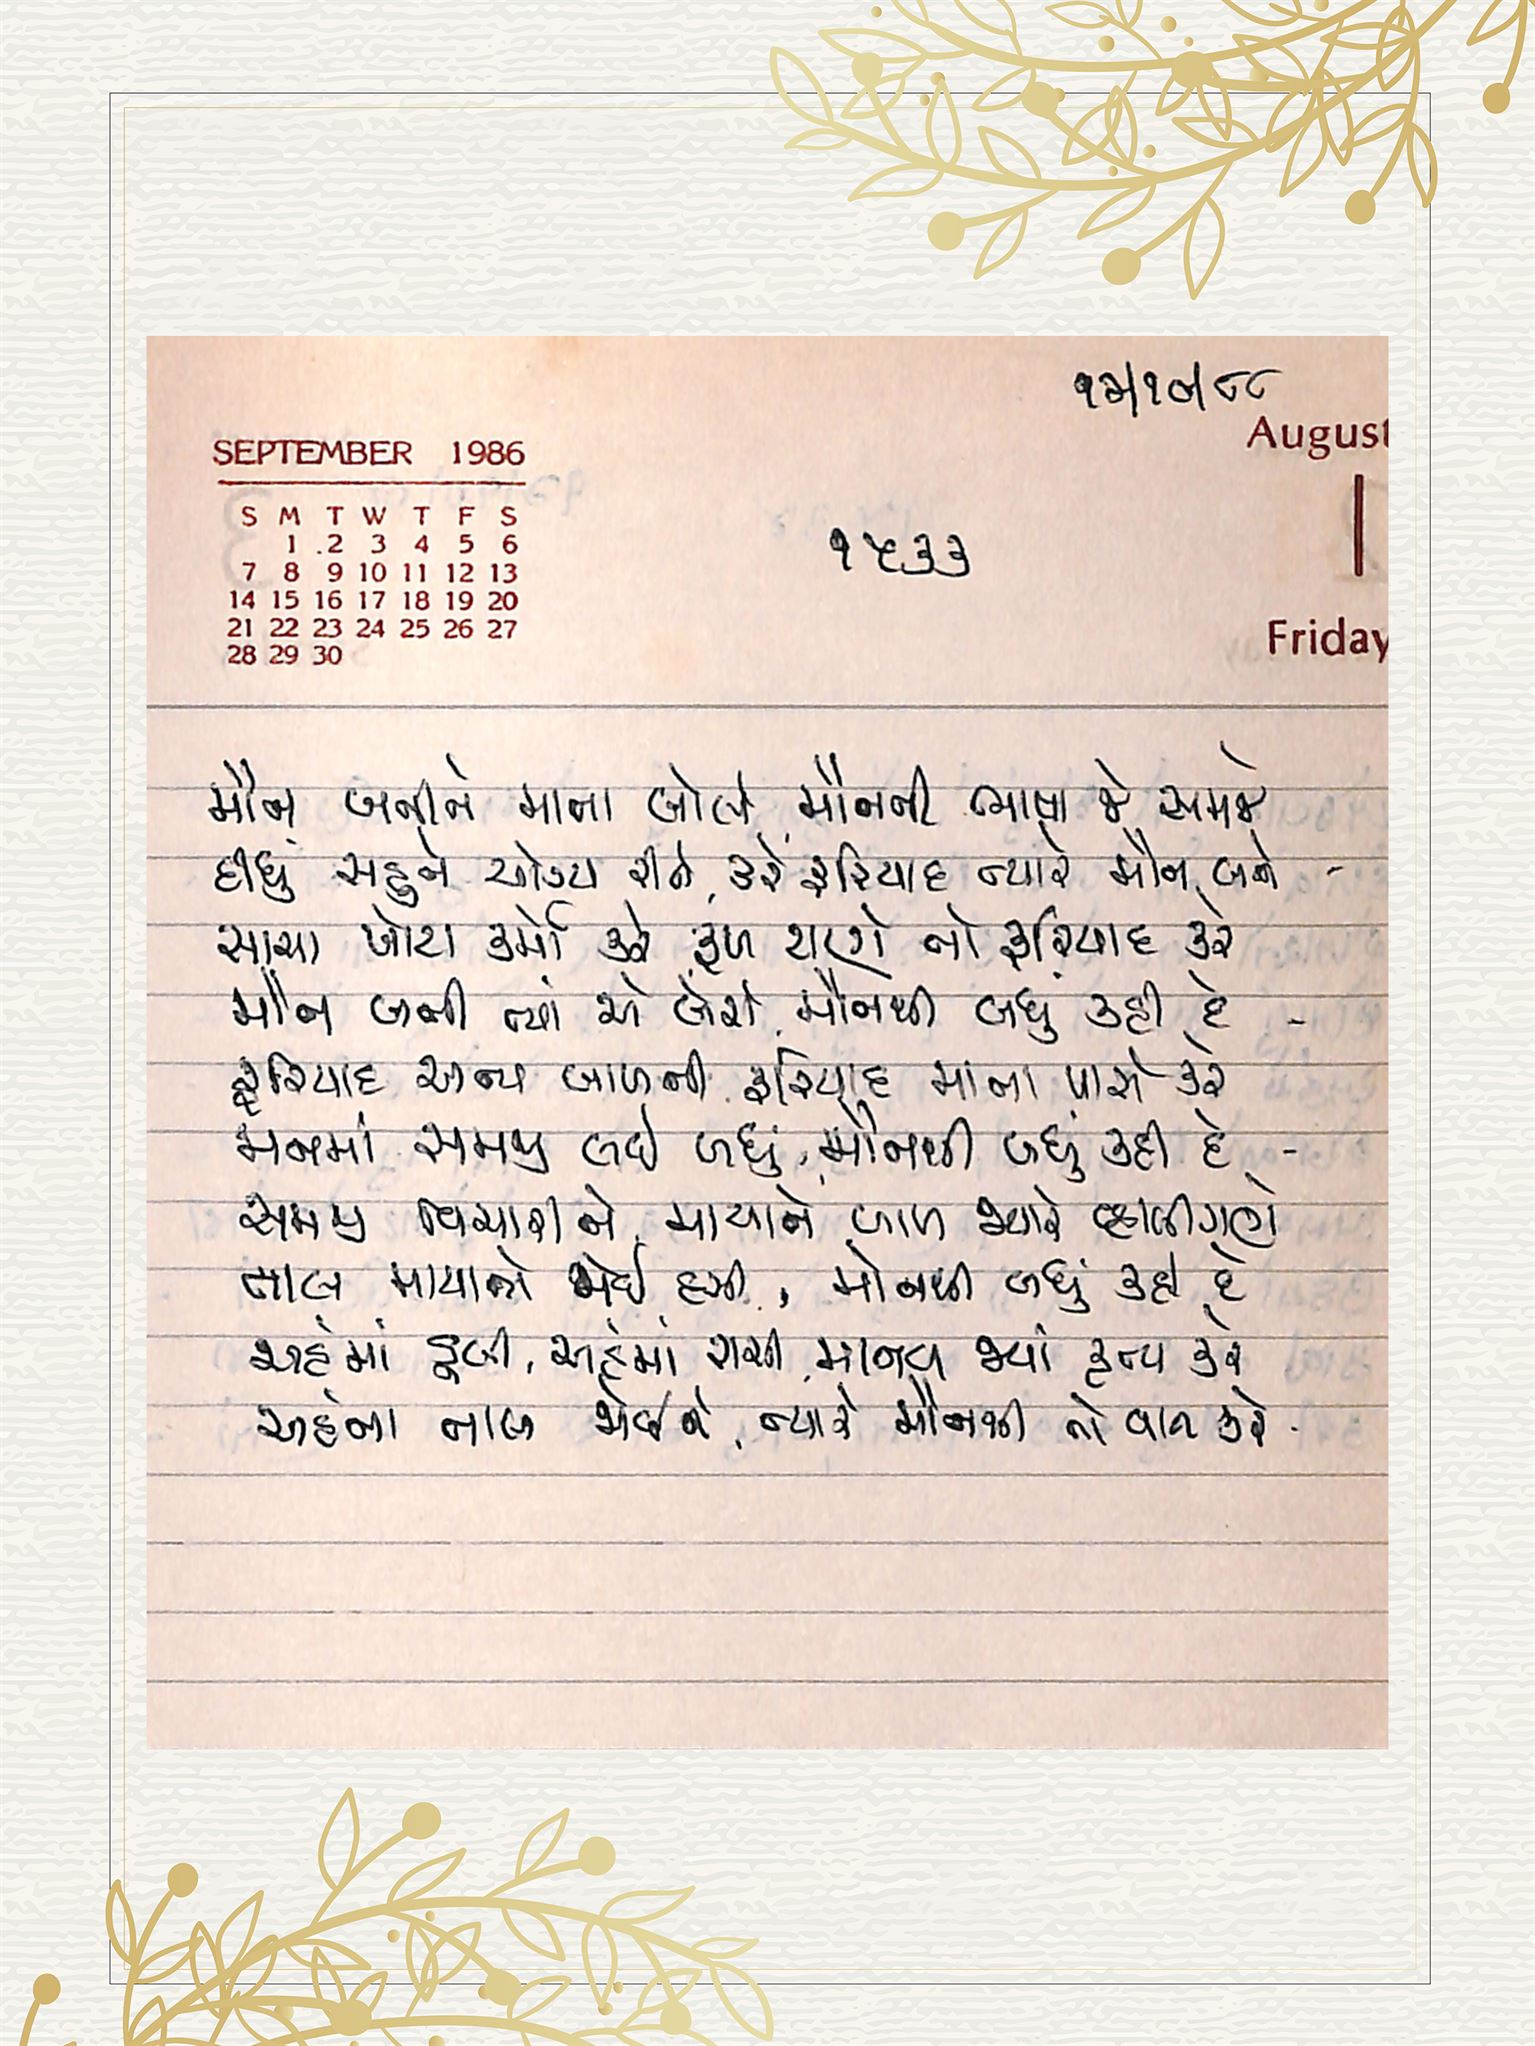 ૧૩/૧૦/૮૮
August
SEPTEMBER 1986
S M T W T F S
1 2 3 4 5 6
7 8 9 10 11 12 13
14 15 16 17 18 19 20
21 22 23 24 25 26 27
28 29 30
૧૫૩૩
Friday
મૌન બનીને માતા બોલે, મૌનની ભાષા જે સમજે
દીધું સહુને યોગ્ય રીતે, કરે ફરિયાદ ત્યારે મૌન બને -
સાચા ખોટા કર્મો કરે, ફળ ટાણે તો ફરિયાદ કરે
મૌન બની ત્યાં એ બેસે, મૌનથી બધું કહી દે -
ફરિયાદ અન્ય બાળની, ફરિયાદ માતા પાસે કરે
મનમાં સમજી લઈ બધું, મૌનથી બધું કહી દે -
સમજી વિચારીને, માયાને બાળ જ્યારે વ્હાલી ગણે
તાલ માયાનો જોઈ હસી, મૌનથી બધું કહી દે
અહંમાં ડૂબી, અહંમાં રાચી, માનવ જ્યાં કૃત્ય કરે
અહંના નાચ જોઈને, ત્યારે મૌનથી તો વાત કરે -